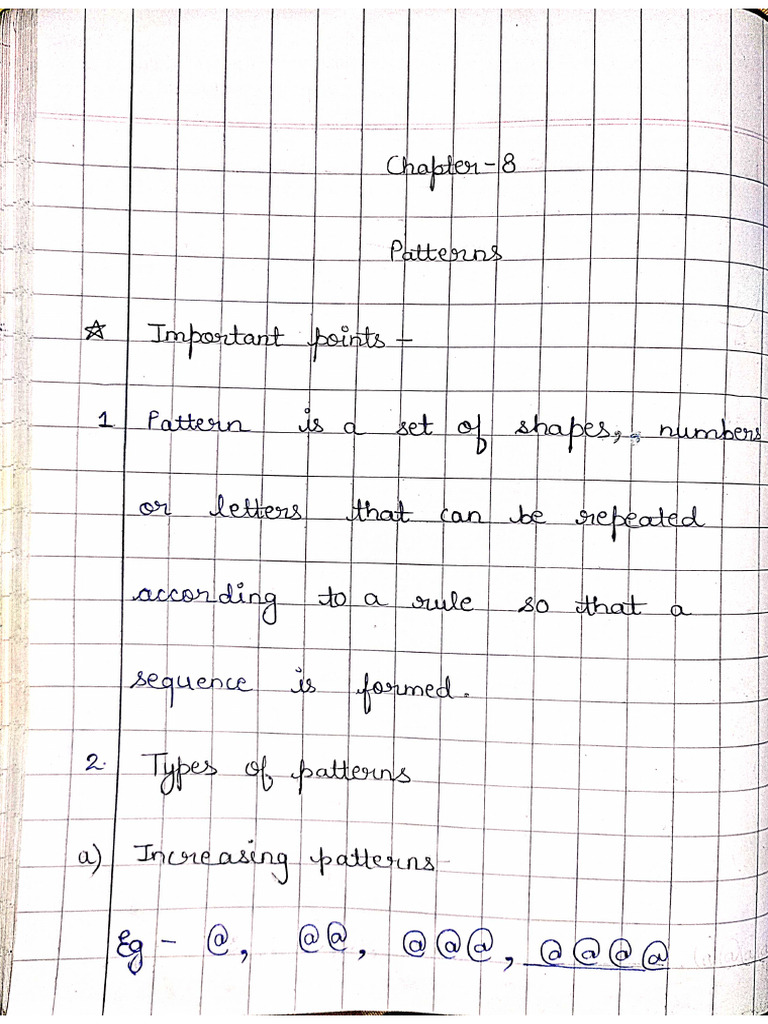 Chapter - 8
Patterns
☆ Important points -
1 Pattern is a set of shapes, numbers
or letters that can be repeated
according to a rule so that a
sequence is formed.
2. Types of patterns
a) Increasing patterns
Eg - @, @@, @@@, @@@@